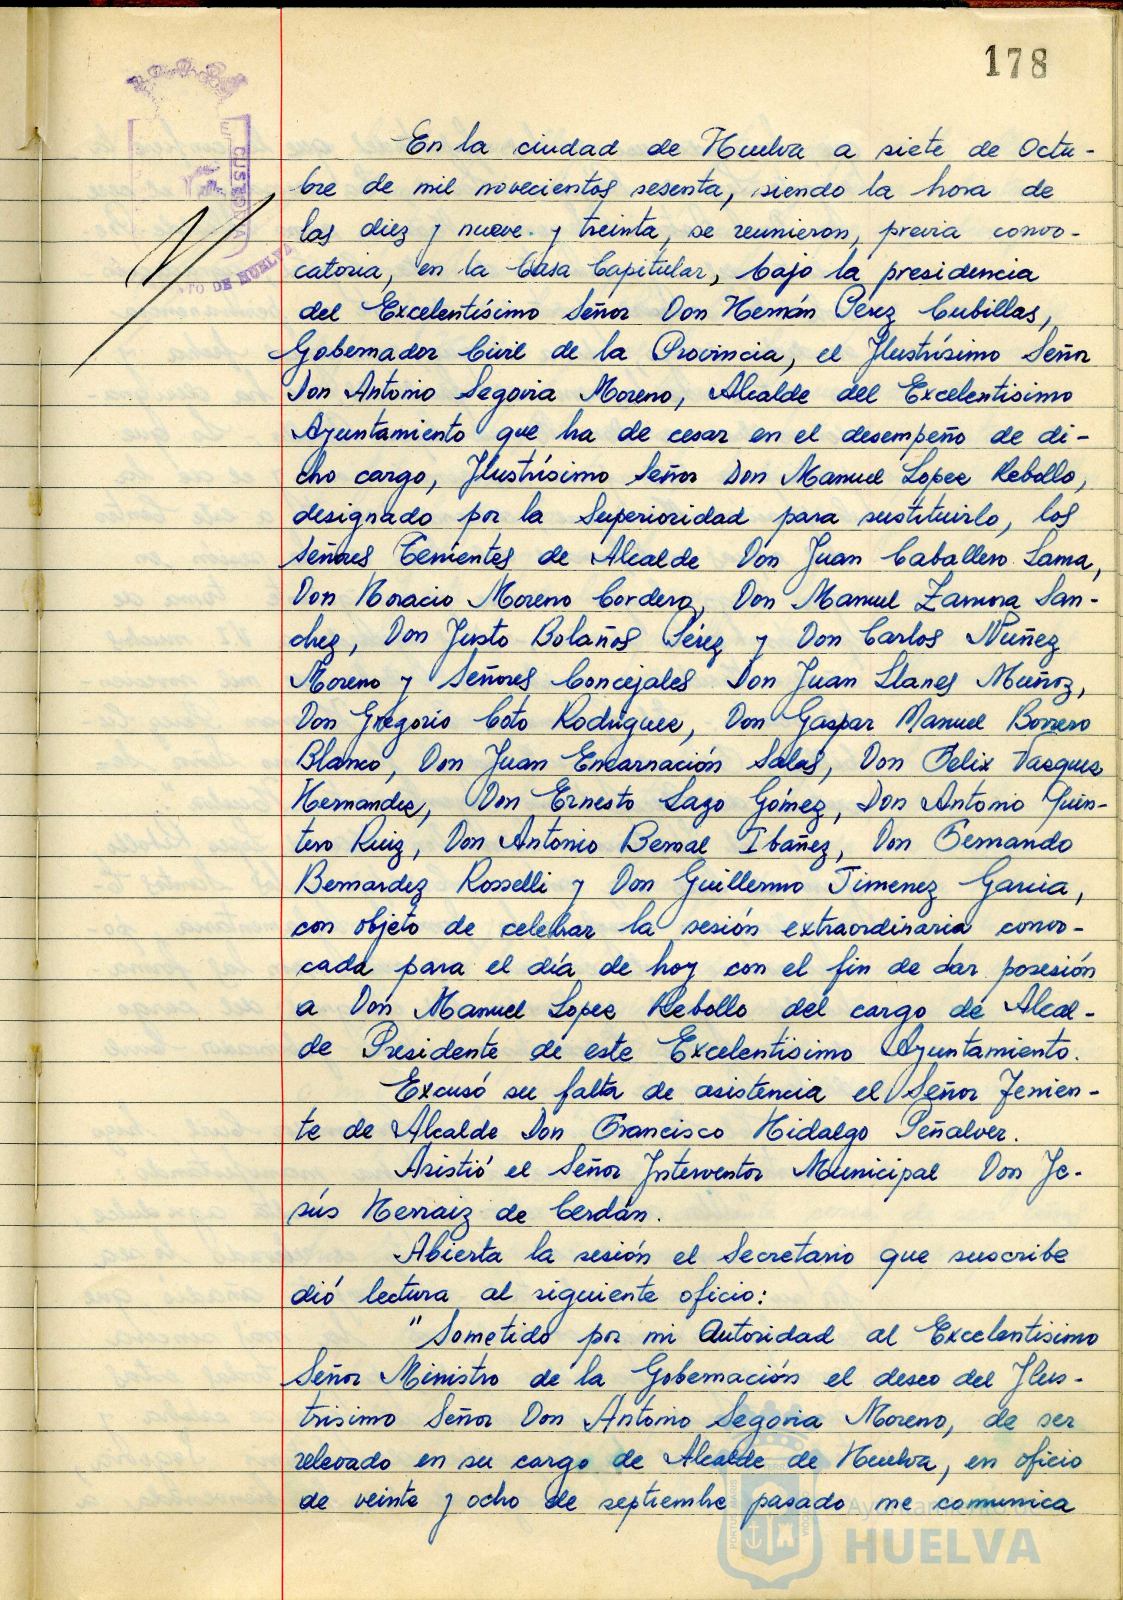 178
En la ciudad de Huelva a siete de Octu-
bre de mil novecientos sesenta, siendo la hora de
las diez y nueve y treinta, se reunieron, previa convo-
catoria, en la Casa Capitular, bajo la presidencia
del Excelentísimo Señor Don Hernán Pérez Cubillas,
Gobernador Civil de la Provincia, el Ilustrísimo Señor
Don Antonio Segovia Moreno, Alcalde del Excelentisimo
Ayuntamiento que ha de cesar en el desempeño de di-
cho cargo, Ilustrísimo Señor Don Manuel Lopez Rebollo,
designado por la Superioridad para sustituirlo, los
Señores Tenientes de Alcalde Don Juan Caballero Lama,
Don Horacio Moreno Cordero, Don Manuel Zamora San-
chez, Don Justo Bolaños Pérez y Don Carlos Núñez
Moreno y Señores Concejales Don Juan Llanes Muñoz,
Don Gregorio Coto Rodriguez, Don Gaspar Manuel Borrero
Blanco, Don Juan Encarnación Salas, Don Felix Vazquez
Hernandez, Don Ernesto Lago Gómez, Don Antonio Quin-
tero Ruiz, Don Antonio Bernal Ibañez, Don Fernando
Bernardez Rosselli y Don Guillermo Jimenez Garcia,
con objeto de celebrar la sesión extraordinaria convo-
cada para el día de hoy con el fin de dar posesión
a Don Manuel Lopez Rebollo del cargo de Alcal-
de Presidente de este Excelentisimo Ayuntamiento.
Excusó su falta de asistencia el Señor Tenien-
te de Alcalde Don Francisco Hidalgo Peñalver.
Asistió el Señor Interventor Municipal Don Je-
sús Herraiz de Cerdán.
Abierta la sesión el Secretario que suscribe
dió lectura al siguiente oficio:
"Sometido por mi Autoridad al Excelentisimo
Señor Ministro de la Gobernación el deseo del Ilus-
trisimo Señor Don Antonio Segovia Moreno, de ser
relevado en su cargo de Alcalde de Huelva, en oficio
de veinte y ocho de septiembre pasado me comunica
CUSTODIA
TO DE HUELVA
Ayuntamiento de
HUELVA